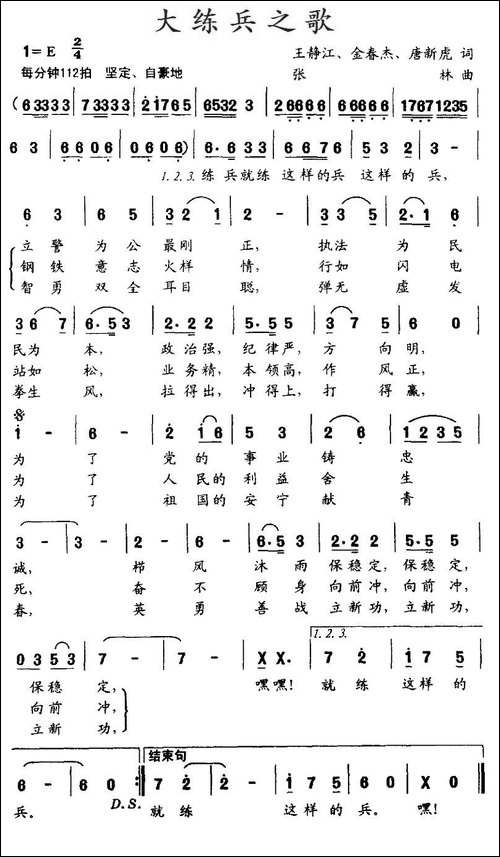 大练兵之歌
1=E 2/4
王静江、金春杰、唐新虎 词
每分钟112拍 坚定、自豪地
张 林 曲
(6333 3 | 7333 3 | 2 1765 | 6532 3 | 2 666 6 | 6 666 6 | 1767 1235 |
6 3 | 6 6 0 6 | 0 6 0 6) | 6·6 3 3 | 6 6 7 6 | 5 2 | 3 - |
1.2.3.练兵就练 这样的兵 这样的 兵,
6 3 | 6 5 | 3 2 1 | 2 - | 3 3 5 | 2·1 6 |
立 警 为 公 最刚 正, 执法 为 民
钢 铁 意 志 火样 情, 行如 闪 电
智 勇 双 全 耳目 聪, 弹无 虚 发
3 6 7 | 6·5 3 | 2·2 2 | 5·5 5 | 3 7 5 | 6 0 |
民为 本, 政治强, 纪律严, 方 向明,
站如 松, 业务精, 本领高, 作 风正,
拳生 风, 拉得出, 冲得上, 打 得赢,
1 - | 6 - | 2 1 6 | 5 3 | 2 6 | 1 2 3 5 |
为 了 党 的 事 业 铸 忠
为 了 人 民的 利 益 舍 生
为 了 祖 国的 安 宁 献 青
3 - | 3 - | 2 - | 6 - | 6·5 3 | 2·2 2 | 5·5 5 |
诚, 栉 风 沐 雨 保稳定, 保稳定,
死, 奋 不 顾 身 向前冲, 向前冲,
春, 英 勇 善 战 立新功, 立新功,
1.2.3.
0 3 5 3 | 7 - | 7 - | X X. | 7 2 | 1 7 5 |
保稳 定, 嘿嘿! 就 练 这样 的
向前 冲,
立新 功,
结束句
6 - | 6 0 :‖ 7 2 | 2 - | 1 7 5 | 6 0 | X 0 ‖
兵。 D.S. 就 练 这样 的 兵。 嘿!